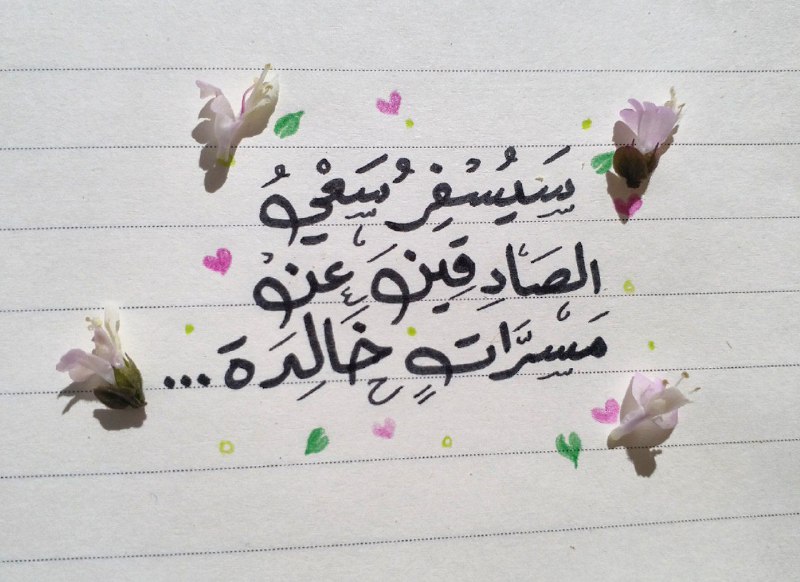 سَيُسْفِرُ سَعْيُ
الصَادِقِينَ عَنْ
مَسَرَّاتٍ خَالِدَة...